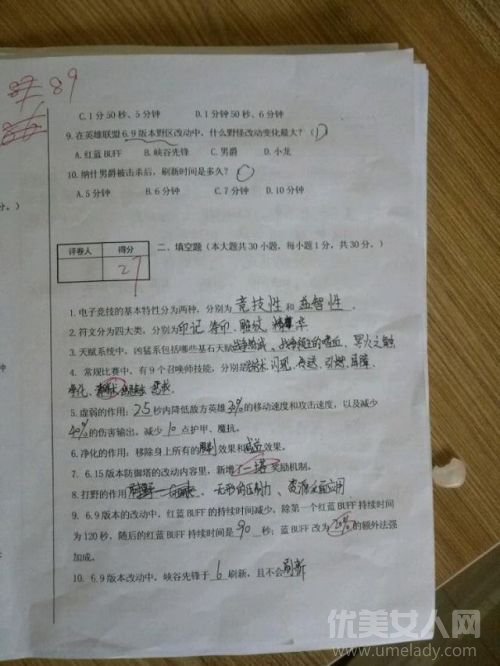 89
C.1分50秒、5分钟 D.1分50秒、6分钟
9.在英雄联盟6.9版本野区改动中，什么野怪改动变化最大？（D）
A.红蓝BUFF B.峡谷先锋 C.男爵 D.小龙
10.纳什男爵被击杀后，刷新时间是多久？（C）
A.5分钟 B.6分钟 C.7分钟 D.10分钟
分。）
评卷人 得分
27
二、填空题（本大题共30小题，每小题1分，共30分。）
1.电子竞技的基本特性分为两种，分别为竞技性和益智性。
2.符文分为四大类，分别为印记、符印、雕纹、精华
3.天赋系统中，凶猛系包括哪些基石天赋战争热诚、战争领主的嗜血、冥火之触
4.常规比赛中，有9个召唤师技能，分别是治疗术、闪现、传送、引燃、屏障、
净化、惩戒
5.虚弱的作用：2.5秒内降低敌方英雄30%的移动速度和攻击速度，以及减少
40%的伤害输出，减少10点护甲、魔抗。
6.净化的作用：移除身上所有的限制效果和减益效果。
7.6.15版本防御塔的改动内容里，新增了一塔奖励机制。
8.打野的作用 无形的压力、资源运用
9.6.9版本的改动中，红蓝BUFF的持续时间减少，除第一个红蓝BUFF持续时间
为120秒，随后的红蓝BUFF持续时间是90秒；蓝BUFF改为20%的额外法强
加成。
10.6.9版本改动中，峡谷先锋于6刷新，且不会刷新
优美女人网
www.umelady.com